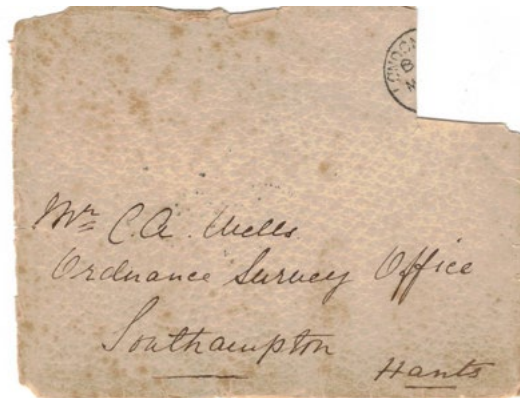 LONDON
Mr C.A. Wells
Ordnance Survey Office
Southampton
Hants